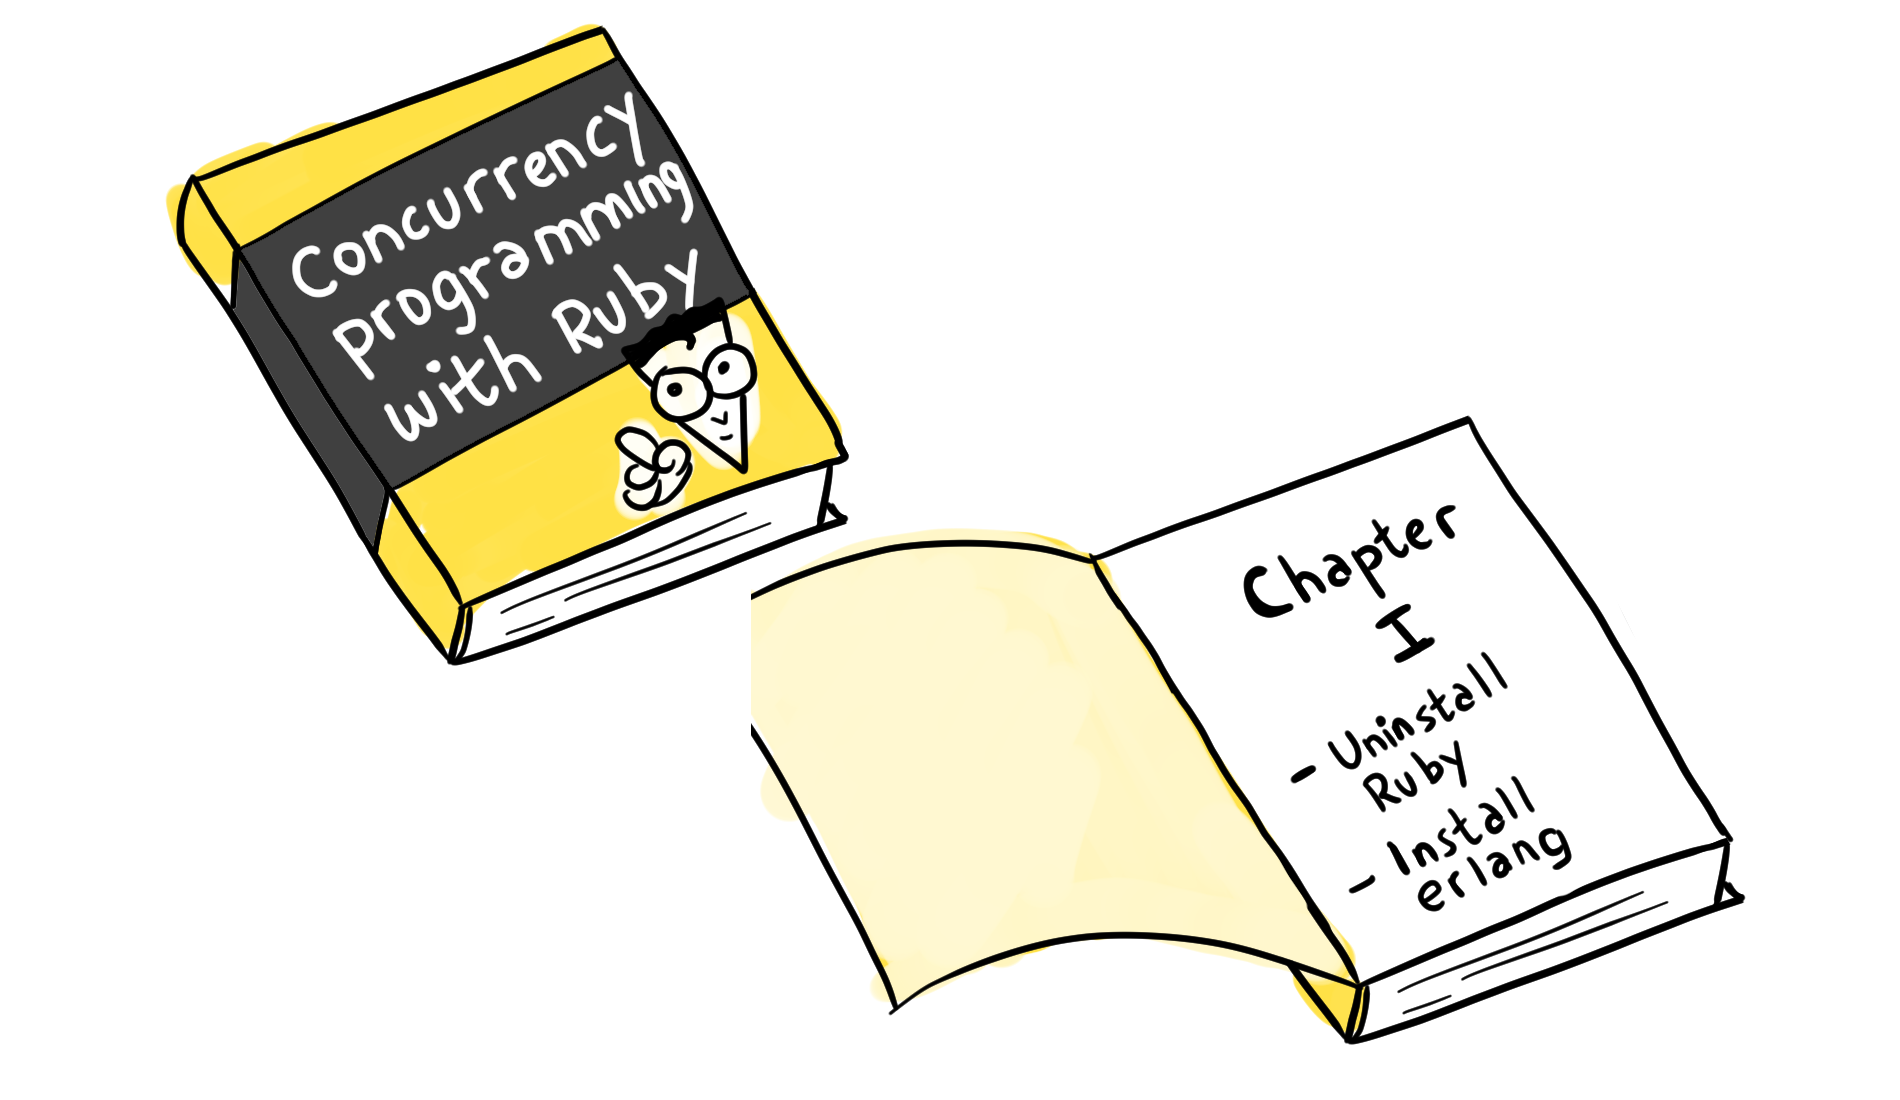 Concurrency
programming
with Ruby
Chapter
I
- Uninstall
Ruby
- Install
erlang